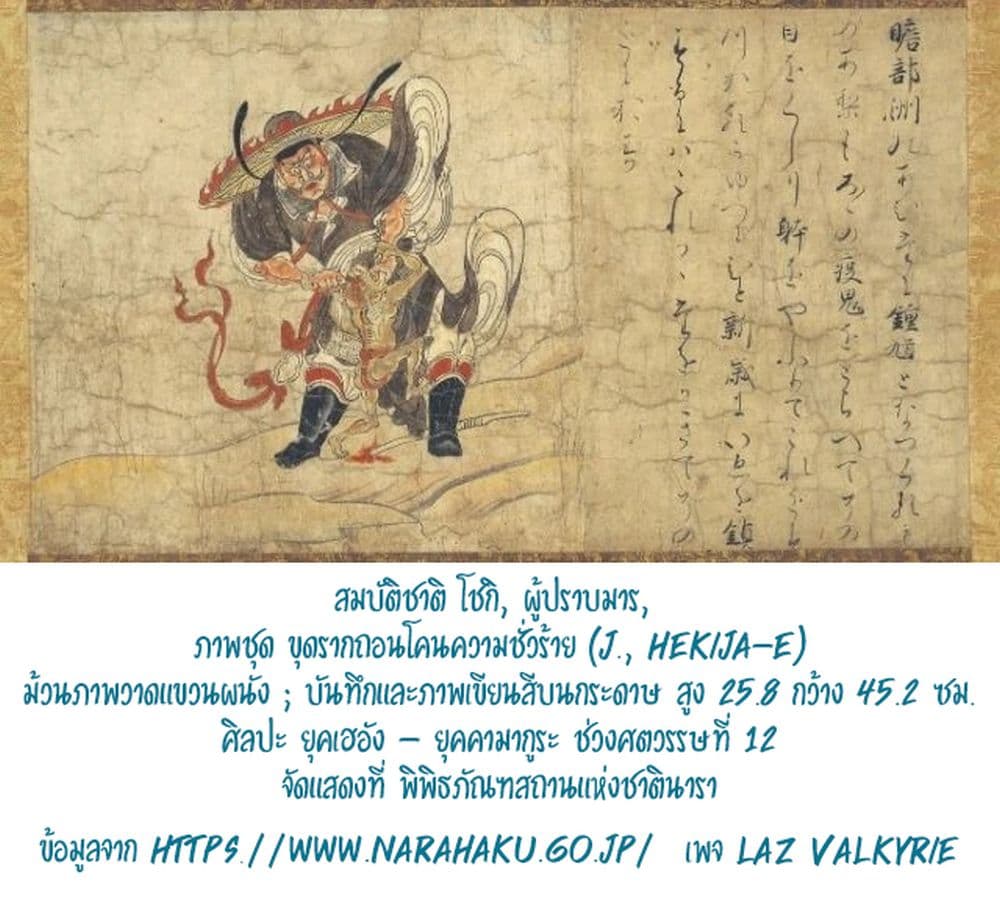 瞻部洲 鍾馗となつく
疫鬼をとらへてその
目をくしり躰をやふりてこれを
新歳にいへを鎮
สมบัติชาติ โชกิ, ผู้ปราบมาร,
ภาพชุด ขุดรากถอนโคนความชั่วร้าย (J., HEKIJA-E)
ม้วนภาพวาดแขวนผนัง ; บันทึกและภาพเขียนสีบนกระดาษ สูง 25.8 กว้าง 45.2 ซม.
ศิลปะ ยุคเฮอัง – ยุคคามากูระ ช่วงศตวรรษที่ 12
จัดแสดงที่ พิพิธภัณฑสถานแห่งชาตินารา
ข้อมูลจาก HTTPS.//WWW.NARAHAKU.GO.JP/ เพจ LAZ VALKYRIE